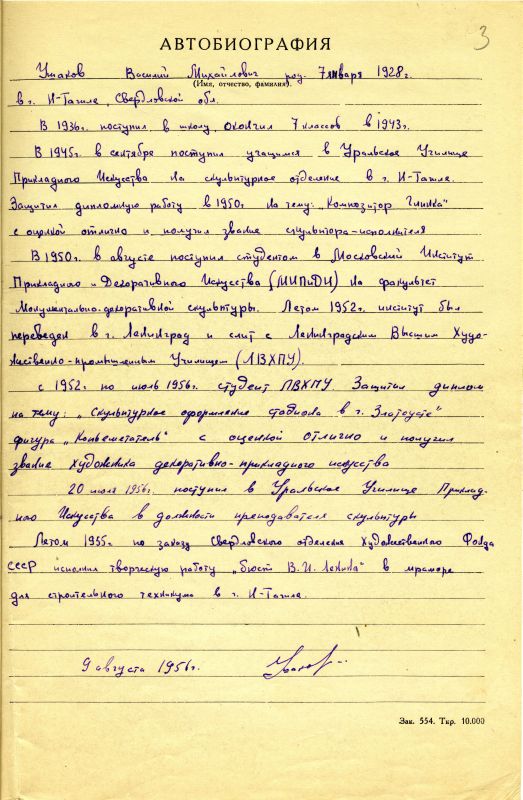 3
АВТОБИОГРАФИЯ
Ушаков Василий Михайлович род. 7 января 1928г.
(Имя, отчество, фамилия)
в г. Н-Тагиле, Свердловской обл.
В 1936г. поступил в школу, окончил 7 классов в 1943г.
В 1945г. в сентябре поступил учащимся в Уральское Училище
Прикладного Искусства на скульптурное отделение в г. Н-Тагиле.
Защитил дипломную работу в 1950г. на тему: „Композитор Глинка"
с оценкой отлично и получил звание скульптора-исполнителя
В 1950г. в августе поступил студентом в Московский Институт
Прикладного и Декоративного Искусства (МИПиДИ) на факультет
Монументально-декоративной скульптуры. Летом 1952г. институт был
переведен в г. Ленинград и слит с Ленинградским Высшим Худо-
жественно-промышленным Училищем (ЛВХПУ).
с 1952г. по июль 1956г. студент ЛВХПУ. Защитил диплом
на тему: „Скульптурное оформление стадиона в г. Златоусте"
фигура „Копьеметатель" с оценкой отлично и получил
звание художника декоративно-прикладного искусства
20 июля 1956г. поступил в Уральское Училище Приклад-
ного Искусства в должности преподавателя скульптуры
Летом 1955г. по заказу Свердловского отделения Художественного Фонда
СССР исполнил творческую работу „бюст В.И. Ленина" в мраморе
для строительного техникума в г. Н-Тагиле.
9 августа 1956г.
Зак. 554. Тир. 10.000